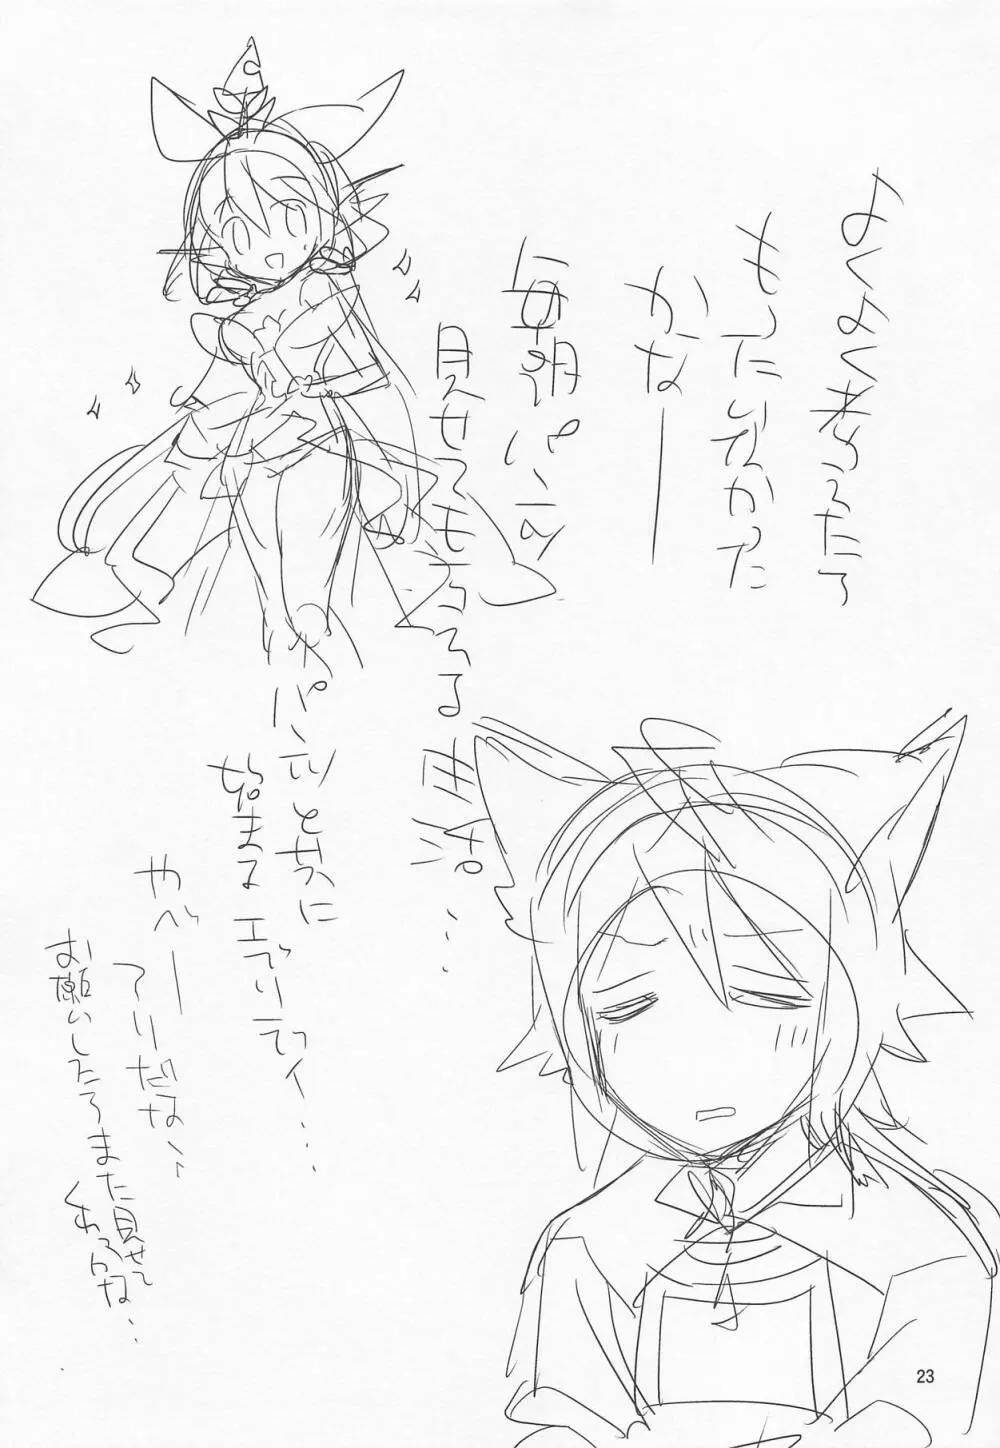 よくよく考えたら
もったいなかった
かなー
毎朝パンツ
見せてもらえる世界…
パンツと共に
始まるエブリディ…
やべー
アリだな、、
お願いしたらまた見せて
くれっかな…
23